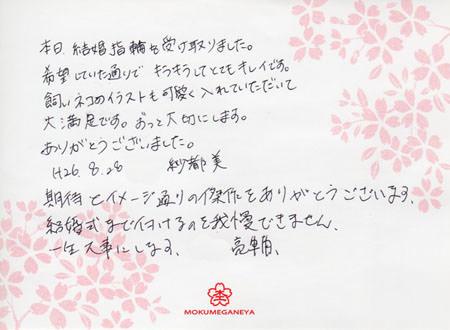 本日 結婚指輪を受け取りました。
希望していた通りで キラキラしてとてもキレイです。
飼いネコのイラストも可愛く入れていただいて
大満足です。ずっと大切にします。
ありがとうございました。
H26.8.28 紗都美
期待とイメージ通りの傑作をありがとうございます、
結婚式まで付けるのを我慢できません、
一生大事にします、 亮輔、
MOKUMEGANEYA